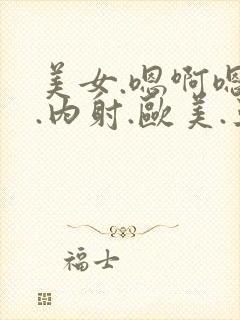 美女.嗯啊嗯
.内射.歐美.
福士